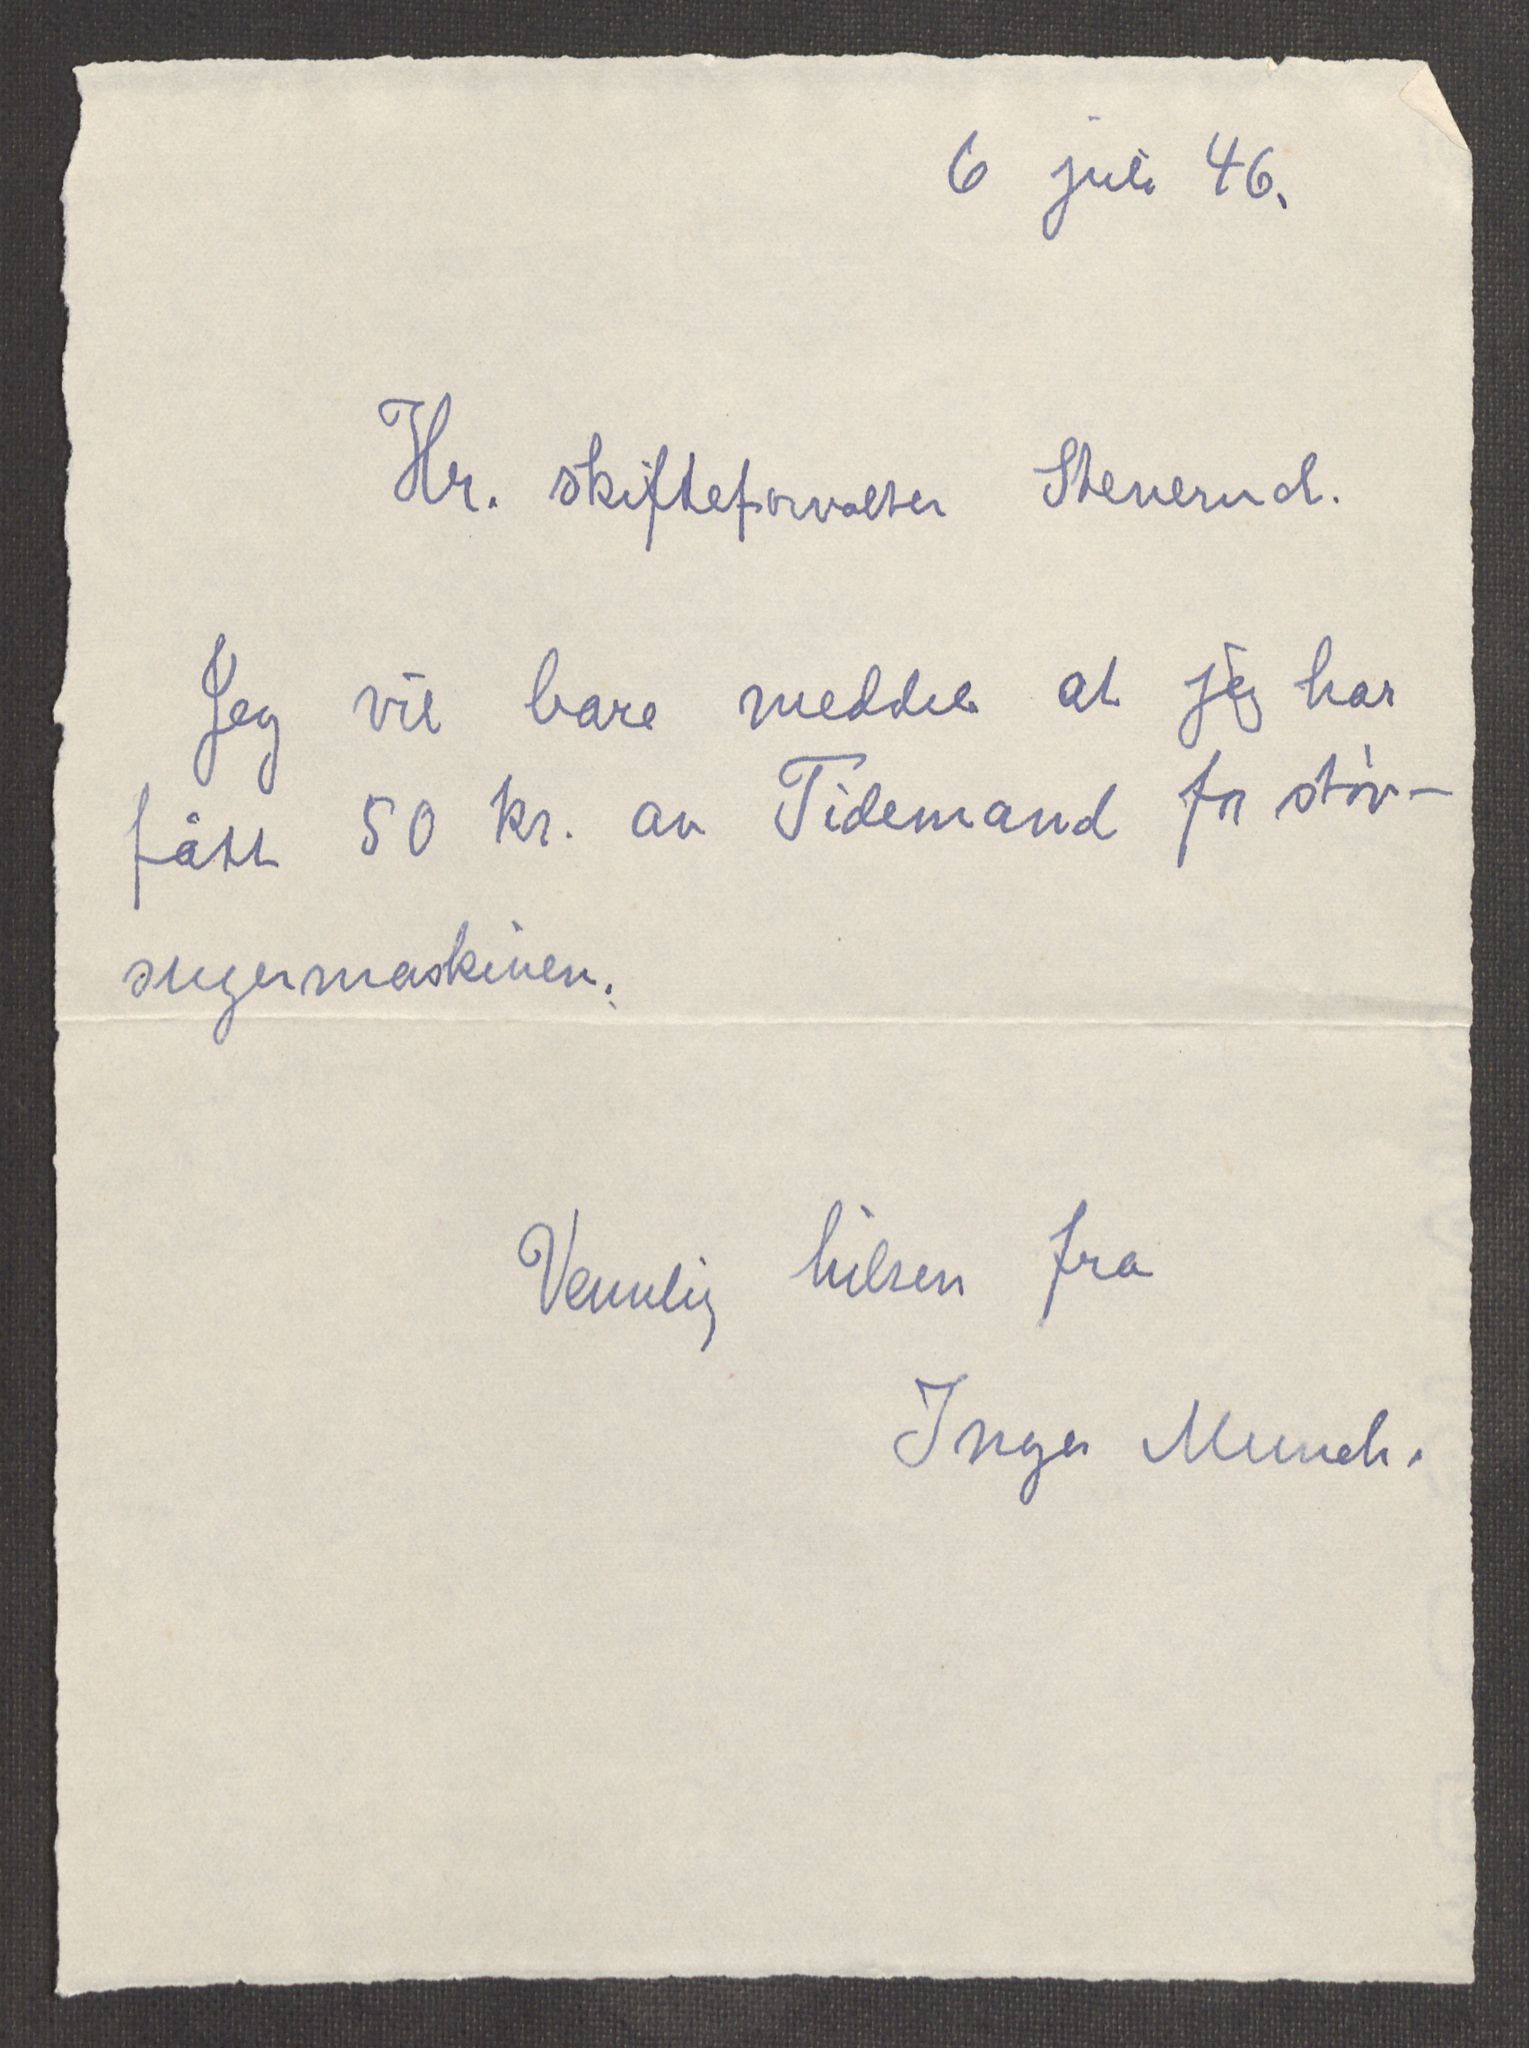 6 juli 46.
Hr. skifteforvalter Stenerud.
Jeg vil bare meddele at jeg har
fått 50 kr. av Tidemand for støv-
sugermaskinen.
Vennlig hilsen fra
Inger Munch.